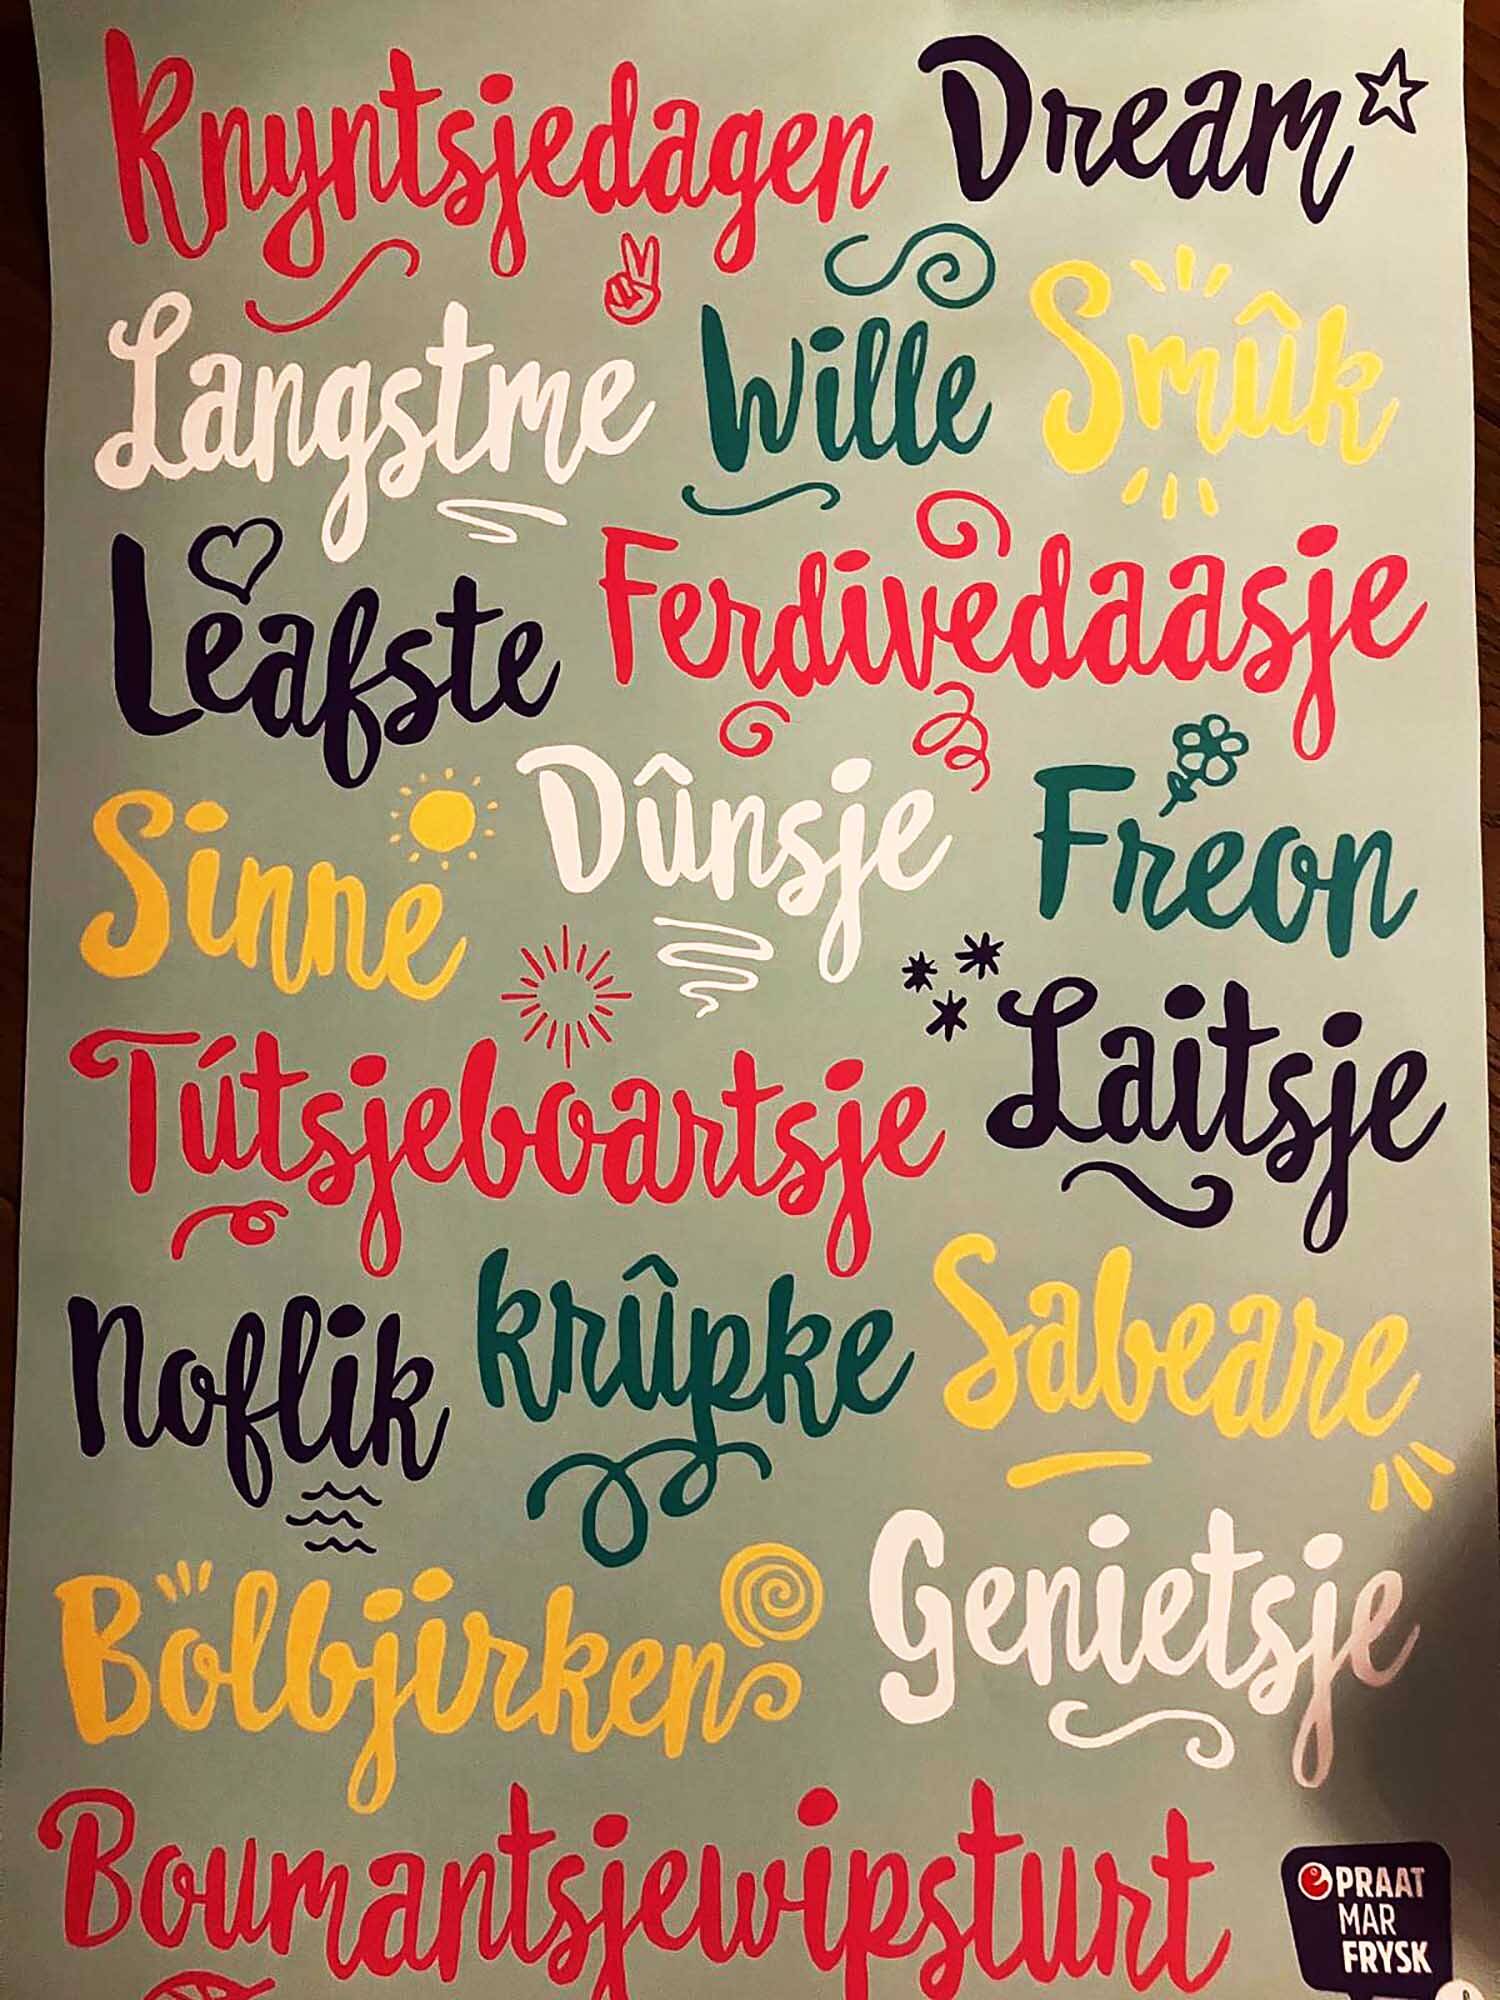 Knyntsjedagen Dream
Langstme Wille Smûk
Leafste Ferdivedaasje
Sinne Dûnsje Freon
Tútsjeboartsje Laitsje
Noflik krûpke Sabeare
Bolbjirken Genietsje
Boumantsjewipsturt
PRAAT
MAR
FRYSK